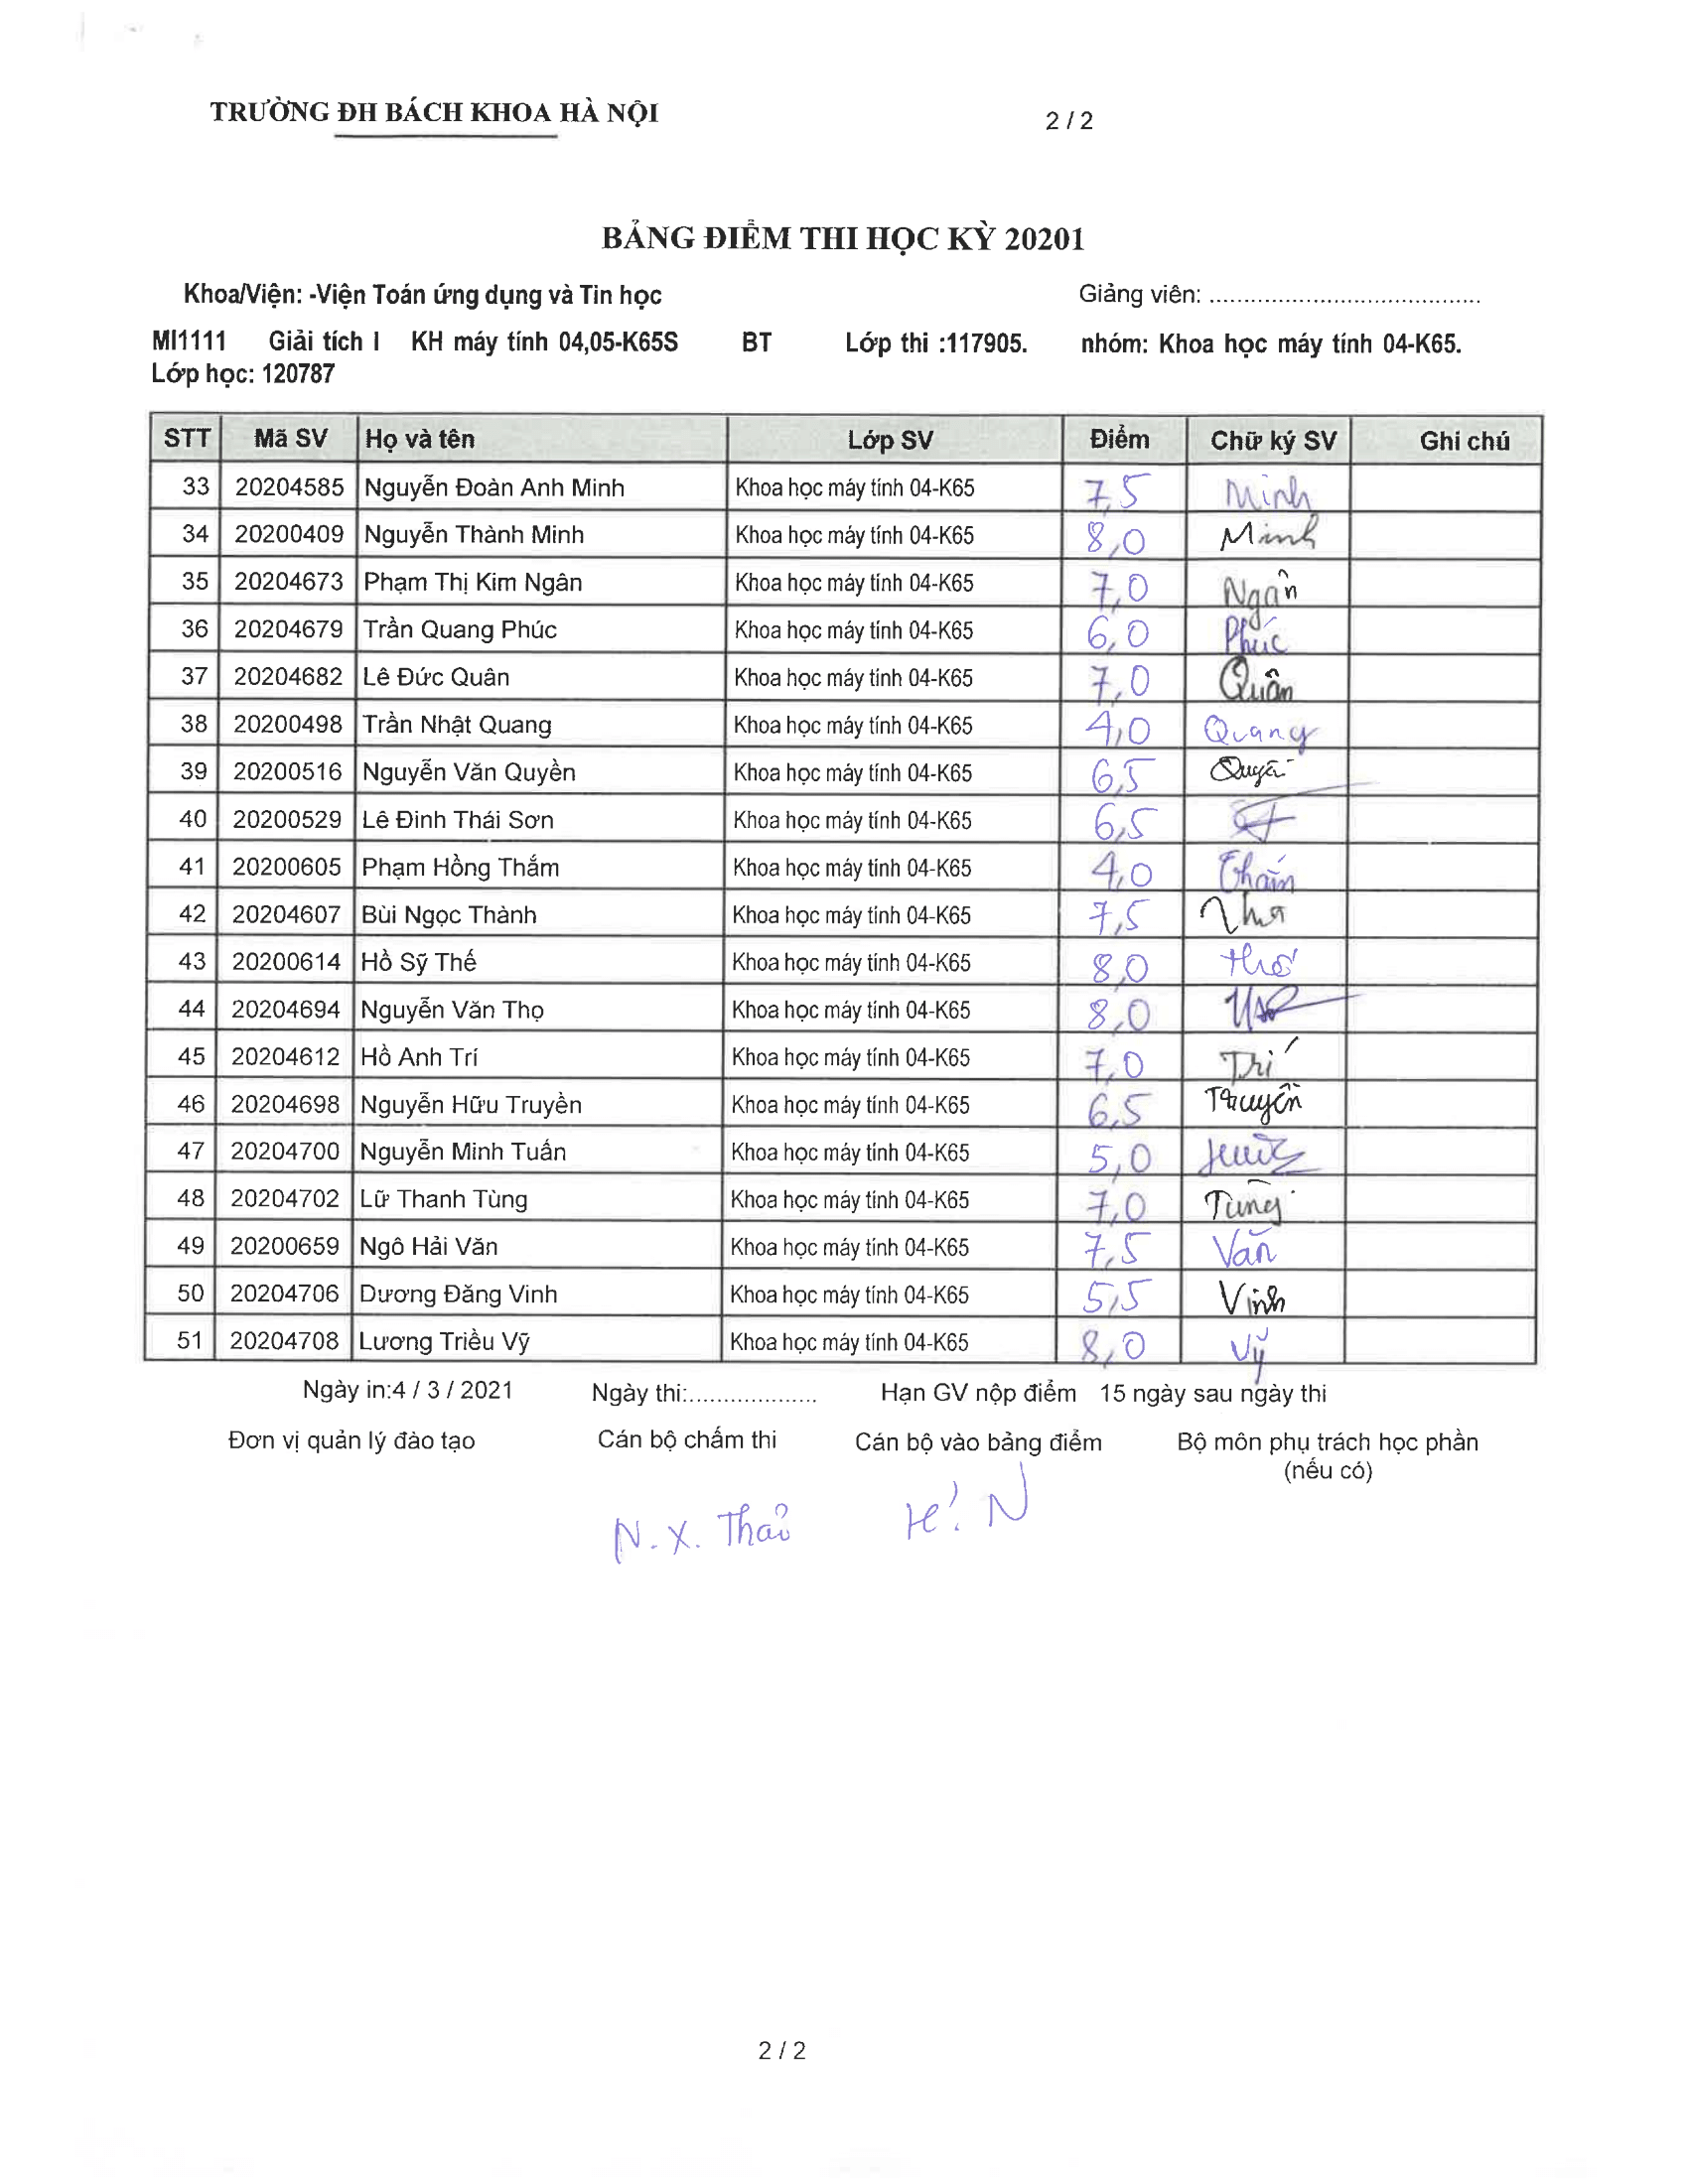 TRƯỜNG ĐH BÁCH KHOA HÀ NỘI 2 / 2
BẢNG ĐIỂM THI HỌC KỲ 20201
Khoa/Viện: -Viện Toán ứng dụng và Tin học Giảng viên: .......................................
MI1111 Giải tích I KH máy tính 04,05-K65S BT Lớp thi :117905. nhóm: Khoa học máy tính 04-K65.
Lớp học: 120787
STT Mã SV Họ và tên Lớp SV Điểm Chữ ký SV Ghi chú
33 20204585 Nguyễn Đoàn Anh Minh Khoa học máy tính 04-K65 7,5 Minh
34 20200409 Nguyễn Thành Minh Khoa học máy tính 04-K65 8,0 Minh
35 20204673 Phạm Thị Kim Ngân Khoa học máy tính 04-K65 7,0 Ngân
36 20204679 Trần Quang Phúc Khoa học máy tính 04-K65 6,0 Phúc
37 20204682 Lê Đức Quân Khoa học máy tính 04-K65 7,0 Quân
38 20200498 Trần Nhật Quang Khoa học máy tính 04-K65 4,0 Quang
39 20200516 Nguyễn Văn Quyền Khoa học máy tính 04-K65 6,5
40 20200529 Lê Đình Thái Sơn Khoa học máy tính 04-K65 6,5
41 20200605 Phạm Hồng Thắm Khoa học máy tính 04-K65 4,0 Thắm
42 20204607 Bùi Ngọc Thành Khoa học máy tính 04-K65 7,5
43 20200614 Hồ Sỹ Thế Khoa học máy tính 04-K65 8,0 thế
44 20204694 Nguyễn Văn Thọ Khoa học máy tính 04-K65 8,0
45 20204612 Hồ Anh Trí Khoa học máy tính 04-K65 7,0 Trí
46 20204698 Nguyễn Hữu Truyền Khoa học máy tính 04-K65 6,5 Truyền
47 20204700 Nguyễn Minh Tuấn Khoa học máy tính 04-K65 5,0
48 20204702 Lữ Thanh Tùng Khoa học máy tính 04-K65 7,0 Tùng
49 20200659 Ngô Hải Văn Khoa học máy tính 04-K65 7,5 Văn
50 20204706 Dương Đăng Vinh Khoa học máy tính 04-K65 5,5 Vinh
51 20204708 Lương Triều Vỹ Khoa học máy tính 04-K65 8,0 Vỹ
Ngày in:4 / 3 / 2021 Ngày thi:................... Hạn GV nộp điểm 15 ngày sau ngày thi
Đơn vị quản lý đào tạo Cán bộ chấm thi Cán bộ vào bảng điểm Bộ môn phụ trách học phần
(nếu có)
N. X. Thảo
2 / 2